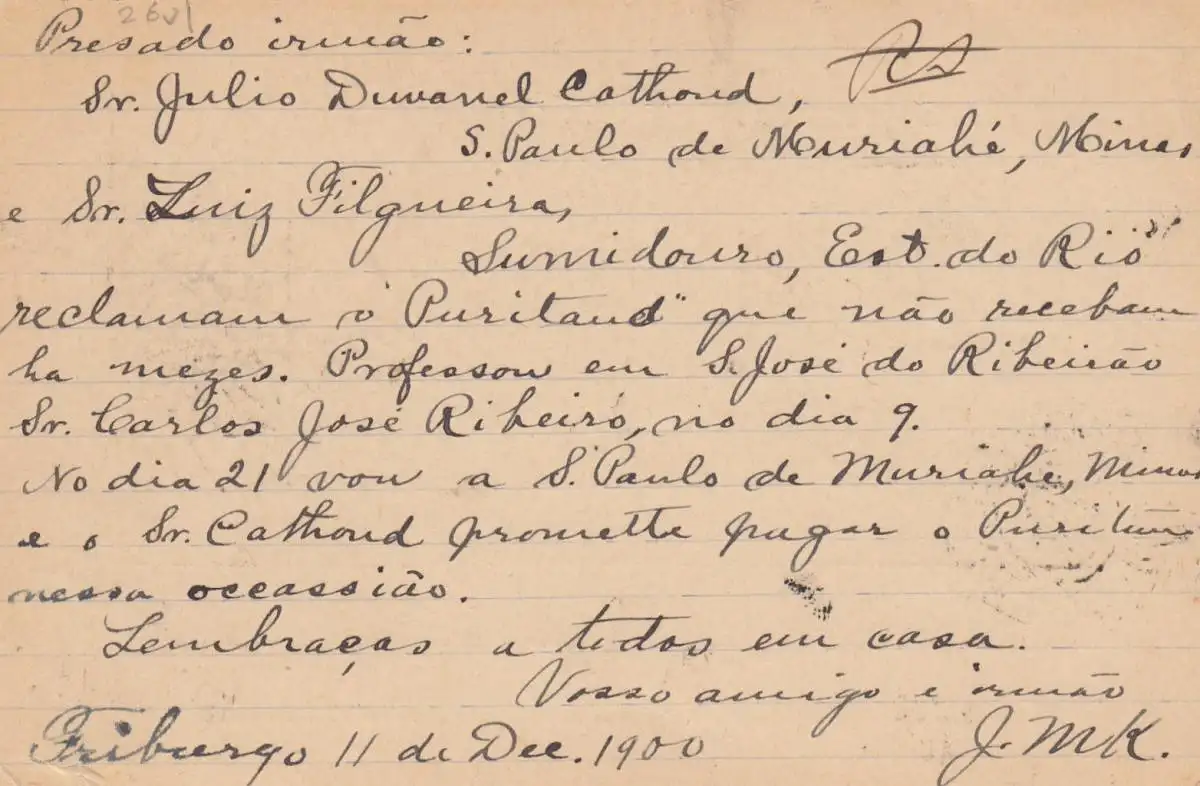 26
Presado irmão:
Sr. Julio Duvanel Cathoud,
S. Paulo de Muriahé, Minas
e Sr. Luiz Filgueira,
Sumidouro, Est. do Rio
reclamam o "Puritano" que não recebam
ha mezes. Professou em S. José do Ribeirão
Sr. Carlos José Ribeiro, no dia 9.
No dia 21 vou a S. Paulo de Muriahe, Minas
e o Sr. Cathoud promette pagar o Puritano
nessa occassião.
Lembraças a todos em casa.
Vosso amigo e irmão
Friburgo 11 de Dec. 1900 J. M K.